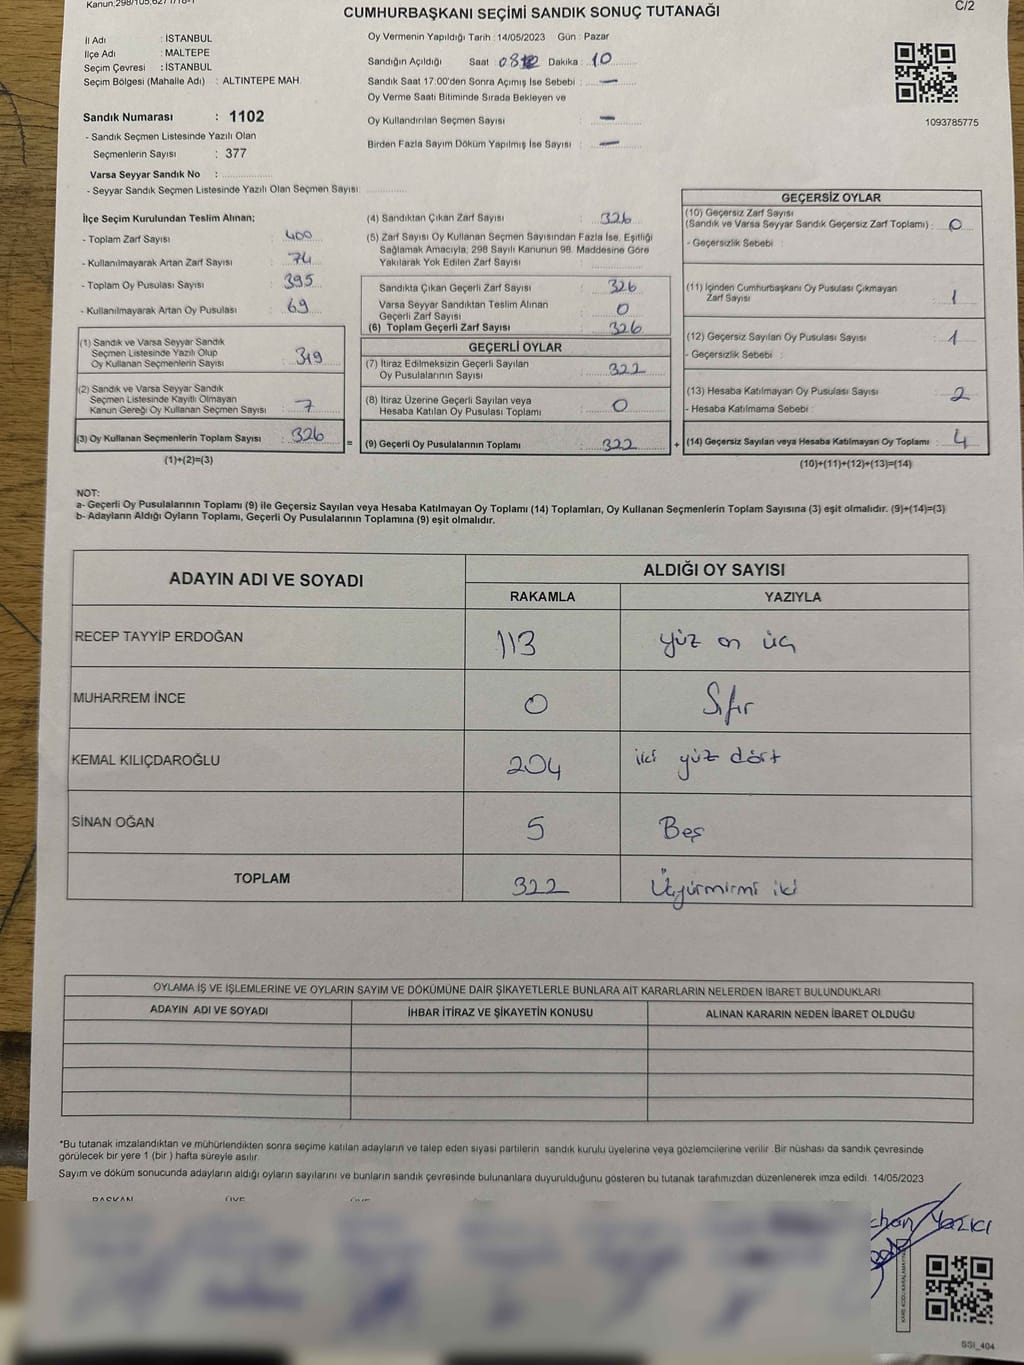 CUMHURBAŞKANI SEÇİMİ SANDIK SONUÇ TUTANAĞI
C/2
İl Adı : İSTANBUL
İlçe Adı : MALTEPE
Seçim Çevresi : İSTANBUL
Seçim Bölgesi (Mahalle Adı) : ALTINTEPE MAH.
Sandık Numarası : 1102
- Sandık Seçmen Listesinde Yazılı Olan
Seçmenlerin Sayısı : 377
Varsa Seyyar Sandık No :
- Seyyar Sandık Seçmen Listesinde Yazılı Olan Seçmen Sayısı:
Oy Vermenin Yapıldığı Tarih : 14/05/2023 Gün : Pazar
Sandığın Açıldığı Saat : Dakika : 10
Sandık Saat 17:00'den Sonra Açımış İse Sebebi : —
Oy Verme Saati Bitiminde Sırada Bekleyen ve
Oy Kullandırılan Seçmen Sayısı : —
Birden Fazla Sayım Döküm Yapılmış İse Sayısı : —
1093785775
İlçe Seçim Kurulundan Teslim Alınan;
- Toplam Zarf Sayısı : 400
- Kullanılmayarak Artan Zarf Sayısı : 74
- Toplam Oy Pusulası Sayısı : 395
- Kullanılmayarak Artan Oy Pusulası : 69
(1) Sandık ve Varsa Seyyar Sandık
Seçmen Listesinde Yazılı Olup
Oy Kullanan Seçmenlerin Sayısı : 319
(2) Sandık ve Varsa Seyyar Sandık
Seçmen Listesinde Kayıtlı Olmayan
Kanun Gereği Oy Kullanan Seçmen Sayısı : 7
(3) Oy Kullanan Seçmenlerin Toplam Sayısı : 326
(1)+(2)=(3)
(4) Sandıktan Çıkan Zarf Sayısı : 326
(5) Zarf Sayısı Oy Kullanan Seçmen Sayısından Fazla İse, Eşitliği
Sağlamak Amacıyla; 298 Sayılı Kanunun 98. Maddesine Göre
Yakılarak Yok Edilen Zarf Sayısı :
Sandıkta Çıkan Geçerli Zarf Sayısı : 326
Varsa Seyyar Sandıktan Teslim Alınan
Geçerli Zarf Sayısı : 0
(6) Toplam Geçerli Zarf Sayısı : 326
GEÇERLİ OYLAR
(7) İtiraz Edilmeksizin Geçerli Sayılan
Oy Pusulalarının Sayısı : 322
(8) İtiraz Üzerine Geçerli Sayılan veya
Hesaba Katılan Oy Pusulası Toplamı : 0
= (9) Geçerli Oy Pusulalarının Toplamı : 322 +
GEÇERSİZ OYLAR
(10) Geçersiz Zarf Sayısı
(Sandık ve Varsa Seyyar Sandık Geçersiz Zarf Toplamı) : 0
- Geçersizlik Sebebi :
(11) İçinden Cumhurbaşkanı Oy Pusulası Çıkmayan
Zarf Sayısı : 1
(12) Geçersiz Sayılan Oy Pusulası Sayısı : 1
- Geçersizlik Sebebi :
(13) Hesaba Katılmayan Oy Pusulası Sayısı : 2
- Hesaba Katılmama Sebebi :
(14) Geçersiz Sayılan veya Hesaba Katılmayan Oy Toplamı : 4
(10)+(11)+(12)+(13)=(14)
NOT:
a- Geçerli Oy Pusulalarının Toplamı (9) ile Geçersiz Sayılan veya Hesaba Katılmayan Oy Toplamı (14) Toplamları, Oy Kullanan Seçmenlerin Toplam Sayısına (3) eşit olmalıdır. (9)+(14)=(3)
b- Adayların Aldığı Oyların Toplamı, Geçerli Oy Pusulalarının Toplamına (9) eşit olmalıdır.
ADAYIN ADI VE SOYADI
ALDIĞI OY SAYISI
RAKAMLA YAZIYLA
RECEP TAYYİP ERDOĞAN 113 yüz on üç
MUHARREM İNCE 0 Sıfır
KEMAL KILIÇDAROĞLU 204 iki yüz dört
SİNAN OĞAN 5 Beş
TOPLAM 322 Üçyürmirmi iki
OYLAMA İŞ VE İŞLEMLERİNE VE OYLARIN SAYIM VE DÖKÜMÜNE DAİR ŞİKAYETLERLE BUNLARA AİT KARARLARIN NELERDEN İBARET BULUNDUKLARI
ADAYIN ADI VE SOYADI İHBAR İTİRAZ VE ŞİKAYETİN KONUSU ALINAN KARARIN NEDEN İBARET OLDUĞU
*Bu tutanak imzalandıktan ve mühürlendikten sonra seçime katılan adayların ve talep eden siyasi partilerin sandık kurulu üyelerine veya gözlemcilerine verilir. Bir nüshası da sandık çevresinde
görülecek bir yere 1 (bir ) hafta süreyle asılır.
Sayım ve döküm sonucunda adayların aldığı oyların sayılarını ve bunların sandık çevresinde bulunanlara duyurulduğunu gösteren bu tutanak tarafımızdan düzenlenerek imza edildi. 14/05/2023
BAŞKAN ÜYE ÜYE
Yazıcı
SSİ_404